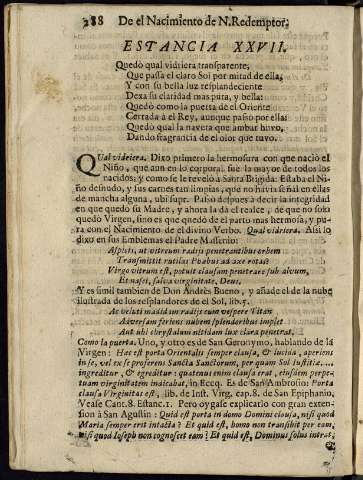 288 De el Nacimiento de N. Redemptor.
ESTANCIA XXVII.
Quedo qual vidriera transparente,
Que passa el claro Sol por mitad de ella,
Y con su bella luz resplandeciente
Dexa su claridad mas pura, y bella:
Quedo como la puerta de el Oriente
Cerrada à el Rey, aunque passo por ella:
Quedo qual la navera que ambar huvo,
Dando fragrancia de el olor que tuvo.
Qual vidriera. Dixo primero la hermosura con que naciò el
Niño, que aun en lo corporal fue la mayor de todos los
nacidos; y como se le revelò à Santa Brigida: Estaba el Ni-
ño desnudo, y sus carnes tan limpias, que no havia señal en ellas
de mancha alguna, ubi supr. Passo despues à decir la integridad
en que quedo su Madre, y ahora la dà el realce, de que no solo
quedo Virgen, sino es que quedò de el parto mas hermosa, y pu-
ra con el Nacimiento de el divino Verbo. Qual vidriera. Assi lo
dixo en sus Emblemas el Padre Massenio:
Aspicis, ut vitreum radijs penetrantibus orbem
Transmittit rutilus Phœbus ad axe rotas?
Virgo vitrum est, potuit clausam penetrare sub alvum,
Et nasci, salva virginitate, Deus.
Y es simil tambien de Don Andrès Bueno, y añade el de la nube
ilustrada de los resplandores de el Sol, lib. 5.
Ac veluti madidum radijs cum vespere Titan
Adversam feriens nubem splendoribus implet
Aut ubi chrystallum nitidam lux clara penetrat.
Como la puerta. Uno, y otro es de San Geronymo, hablando de la
Virgen: Hæc est porta Orientalis semper clausa, & lucida, aperiens
in se, vel ex se proferens Sancta Sanctorum, per quam Sol Iustitiæ....
ingreditur, & egreditur: quatenus enim clausa erat, eiusdem perpe-
tuam virginitatem indicabat, in Eccq. Es de San Ambrosio: Porta
clausa Virginitas est, lib. de Inst. Virg. cap. 8. de San Epiphanio,
Vease Cant. 8. Estanc. 1. Pero oygase explicarlo con gran exten-
sion à San Agustin: Quid est porta in domo Domini clausa, nisi quod
Maria semper erit intacta? Et quid est, homo non transibit per eam,
nisi quod Ioseph non cognoscet eam? Et quid est, Dominus solus intrat,